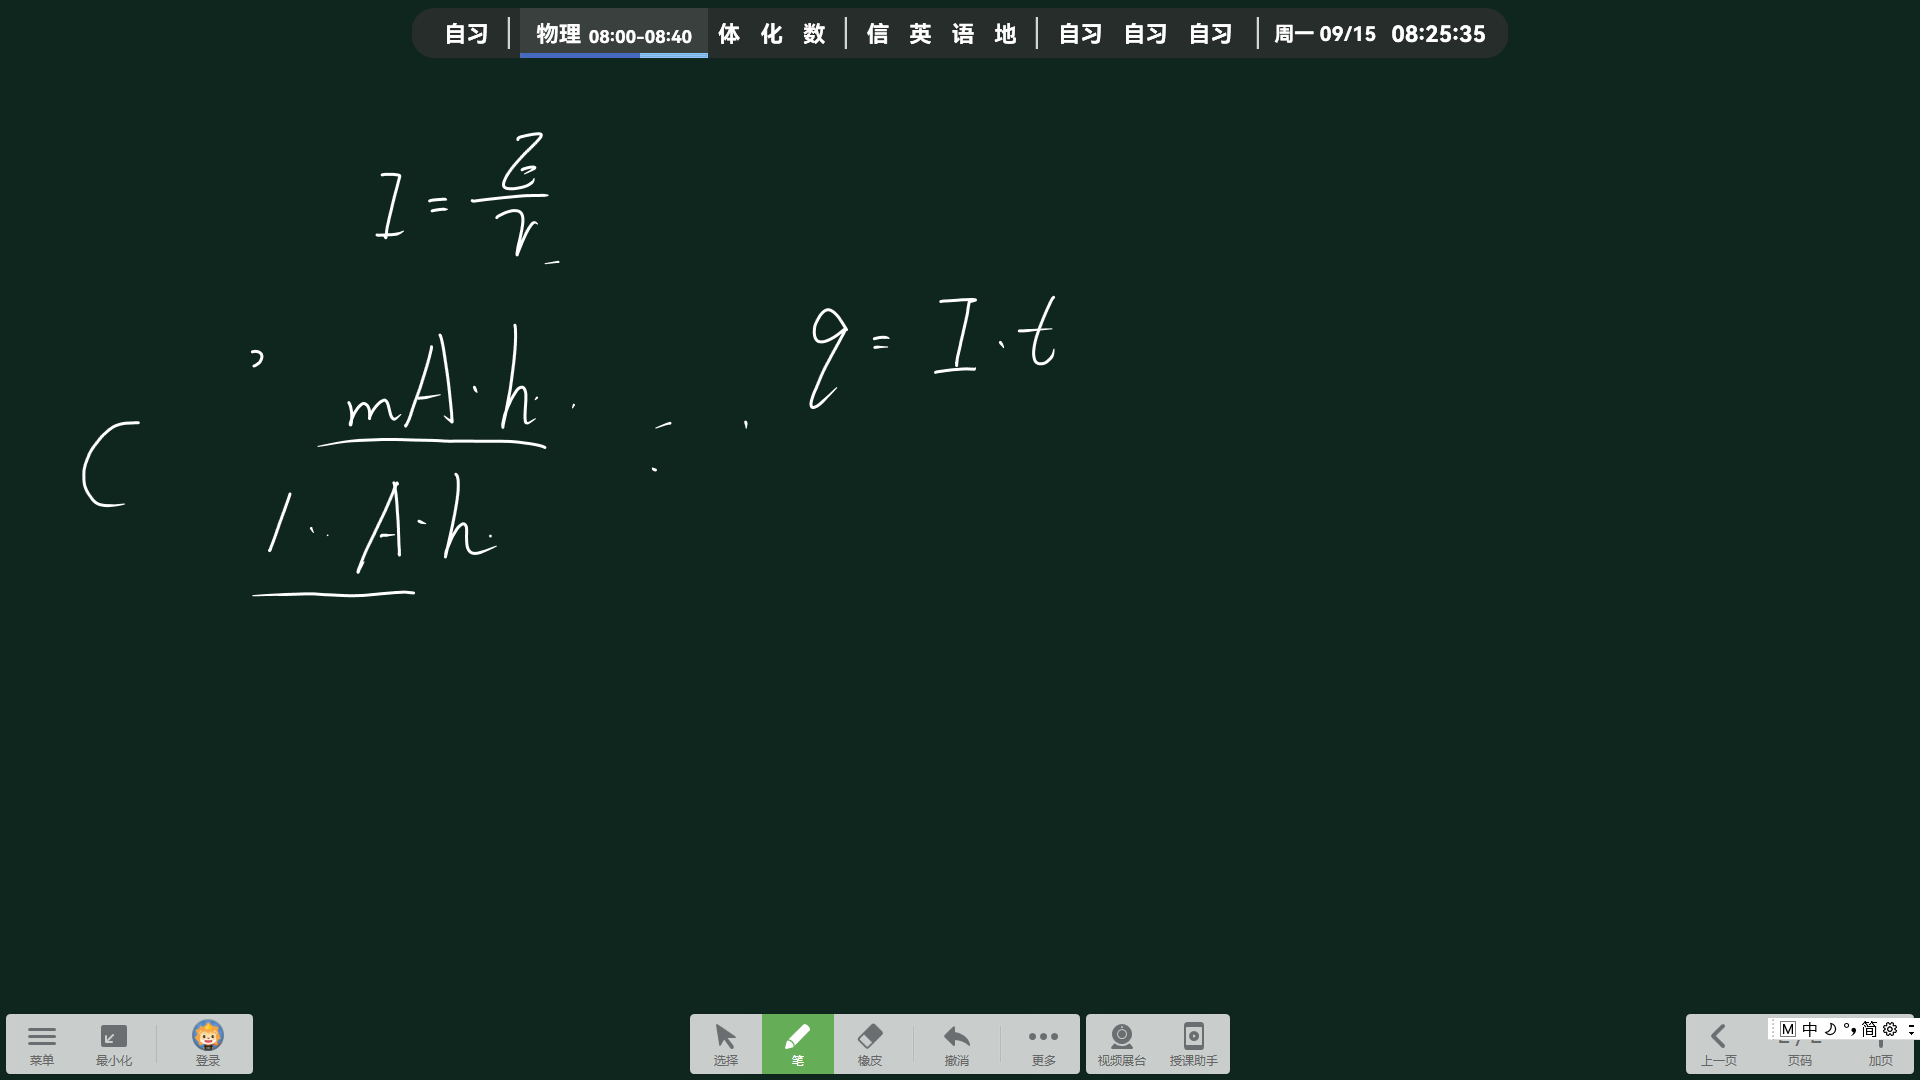 自习 | 物理 08:00-08:40 体 化 数 | 信 英 语 地 | 自习 自习 自习 | 周一 09/15 08:25:35
I = E/r
q = I·t
mA·h
C
1 A·h
菜单 最小化 登录 选择 笔 橡皮 撤消 更多 视频展台 授课助手 上一页 页码 加页
M 中 简